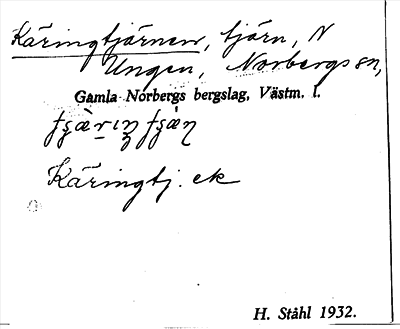 Käringtjärnen, tjärn, N
Ungen, Norbergs sn,
Gamla Norbergs bergslag, Västm. l.
Käringtj. ek
H. Ståhl 1932.